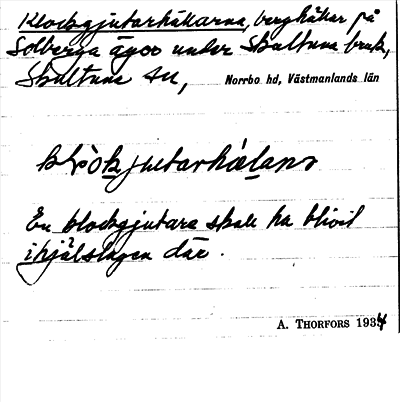 Klockgjutarhällarna, berghällar på
Solberga ägor under Skultuna bruk,
Skultuna sn,
Norrbo hd, Västmanlands län
En klockgjutare skall ha blivit
ihjälslagen där.
A. Thorfors 1934